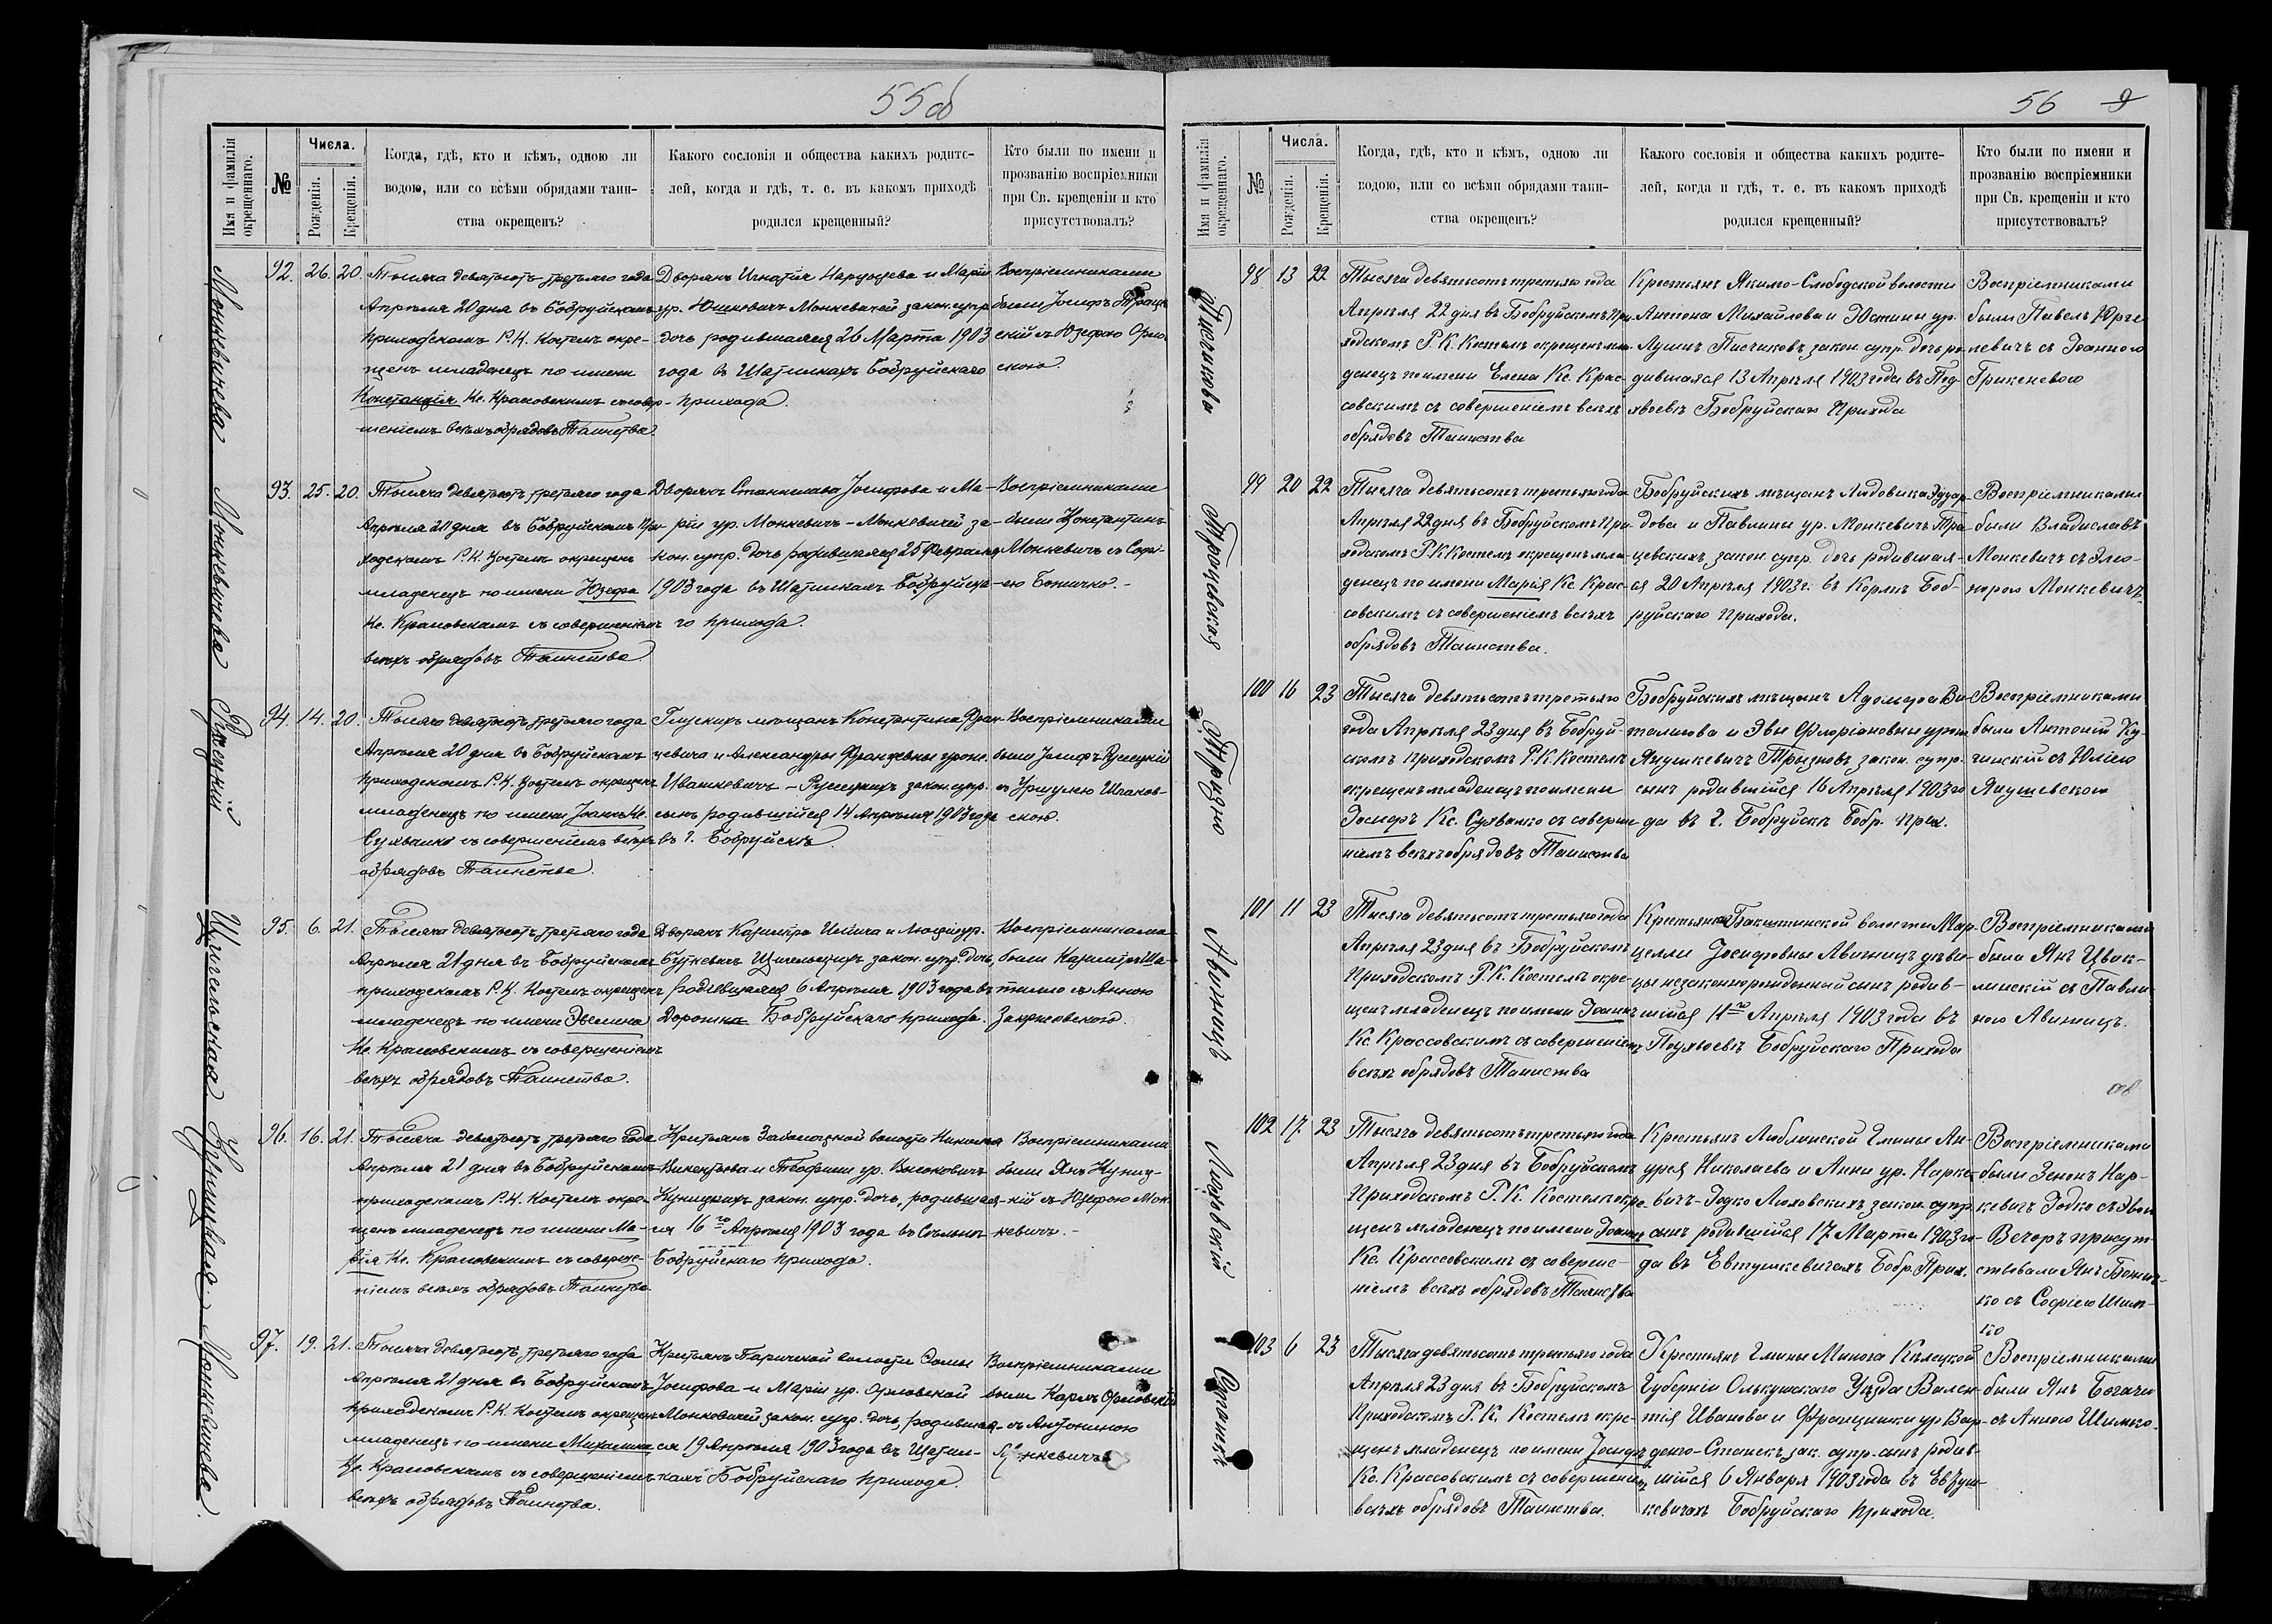 55об
Имя и фамилія окрещеннаго.
№
Числа.
Рожденія.
Крещенія.
Когда, гдѣ, кто и кѣмъ, одною ли
водою, или со всѣми обрядами таин-
ства окрещенъ?
Какого сословія и общества какихъ родите-
лей, когда и гдѣ, т. е. въ какомъ приходѣ
родился крещенный?
Кто были по имени и
прозванію воспріемники
при Св. крещеніи и кто
присутствовалъ?
Монкевичева
92. 26. 20.
Тысяча девятьсотъ третьяго года
Апрѣля 20 дня въ Бобруйскомъ
приходскомъ Р. К. Костелѣ окре-
щенъ младенецъ по имени
Констанція Кс. Красовскимъ съ совер-
шеніемъ всѣхъ обрядовъ Таинства.
Дворянъ Игнатія и Маріи
ур. Юшкевичъ Монкевичей закон. супр.
дочь родившаяся 26 Марта 1903
года въ Шатилкахъ Бобруйскаго
прихода.
Воспріемниками
были Іосифъ
скій съ Юзефою Орло
скою.
Монкевичева
93. 25. 20.
Тысяча девятьсотъ третьяго года
Апрѣля 20 дня въ Бобруйскомъ При
ходскомъ Р. К. Костелѣ окрещенъ
младенецъ по имени Юзефа
Кс. Красовскимъ съ совершеніемъ
всѣхъ обрядовъ Таинства.
Дворянъ Станислава Іосифова и Ма-
ріи ур. Монкевичъ-Монкевичей за-
кон. супр. дочь родившаяся 25 Февраля
1903 года въ Шатилкахъ Бобруйска-
го прихода.
Воспріемниками
были Константинъ
Монкевичъ съ Софі-
ею Боничко.
Ружицкій
94. 14. 20.
Тысяча девятьсотъ третьяго года
Апрѣля 20 дня въ Бобруйскомъ
приходскомъ Р. К. Костелѣ окрещенъ
младенецъ по имени Іоаннъ Кс.
съ совершеніемъ всѣхъ
обрядовъ Таинства.
Глускихъ мѣщанъ Константина Фран-
цевича и Александры Францевны урож.
Ивашкевичъ - закон. супр.
сынъ родившійся 14 Апрѣля 1903 года
въ г. Бобруйскѣ.
Воспріемниками
были Іосифъ
съ Уршулею
скою.
Щигельская
95. 6. 21.
Тысяча девятьсотъ третьяго года
Апрѣля 21 дня въ Бобруйскомъ
приходскомъ Р. К. Костелѣ окрещенъ
младенецъ по имени Эвелина
Кс. Красовскимъ съ совершеніемъ
всѣхъ обрядовъ Таинства.
Дворянъ Казиміра Ильича и Люціи ур.
Буткевичъ Щигельскихъ закон. супр. дочь,
родившаяся 6 Апрѣля 1903 года въ
Бобруйскаго прихода.
Воспріемниками
были Казиміръ Ша-
тилло съ Анною
Закржевскою.
Куницкая.
96. 16. 21.
Тысяча девятьсотъ третьяго года
Апрѣля 21 дня въ Бобруйскомъ
приходскомъ Р. К. Костелѣ окре-
щенъ младенецъ по имени Ма-
рія Кс. Красовскимъ съ соверше-
ніемъ всѣхъ обрядовъ Таинства.
Крестьянъ волости Николая
Викентьева и Теофили ур. Высоковичъ
Куницкихъ закон. супр. дочь, родивша-
яся 16го Апрѣля 1903 года въ
Бобруйскаго прихода.
Воспріемниками
были Янъ Куниц-
кій съ Юзефою Мон-
кевичъ.-
Монкевичева.
97. 19. 21.
Тысяча девятьсотъ третьяго года
Апрѣля 21 дня въ Бобруйскомъ
приходскомъ Р. К. Костелѣ окрещенъ
младенецъ по имени Михалина
Кс. Красовскимъ съ совершеніемъ
всѣхъ обрядовъ Таинства.
Крестьянъ Паричской волости Фомы
Іосифова и Маріи ур. Орловской
Монкевичей закон. супр. дочь, родивша-
яся 19 Апрѣля 1903 года въ Шатил-
кахъ Бобруйскаго прихода.
Воспріемниками
были Карлъ Орловскій
съ Антониною
56
Имя и фамилія окрещеннаго.
№
Числа.
Рожденія.
Крещенія.
Когда, гдѣ, кто и кѣмъ, одною ли
водою, или со всѣми обрядами таин-
ства окрещенъ?
Какого сословія и общества какихъ родите-
лей, когда и гдѣ, т. е. въ какомъ приходѣ
родился крещенный?
Кто были по имени и
прозванію воспріемники
при Св. крещеніи и кто
присутствовалъ?
Писчикова
98 13 22
Тысяча девятьсотъ третьяго года
Апрѣля 22 дня въ Бобруйскомъ При-
ходскомъ Р. К. Костелѣ окрещенъ мла-
денецъ по имени Елена Кс. Крас-
совскимъ съ совершеніемъ всѣхъ
обрядовъ Таинства
Крестьянъ Якимо-Слободской волости
Антона Михайлова и Юстины ур.
Лущикъ Писчиковъ закон. супр. дочь ро-
дившаяся 13 Апрѣля 1903 года въ Под-
Бобруйскаго Прихода
Воспріемниками
были Павелъ Юрге
левичъ съ Іоанною
Гриневою
Трацевская
99 20 22
Тысяча девятьсотъ третьяго года
Апрѣля 22 дня въ Бобруйскомъ При-
ходскомъ Р. К. Костелѣ окрещенъ мла-
денецъ по имени Марія Кс. Крас-
совскимъ съ совершеніемъ всѣхъ
обрядовъ Таинства.
Бобруйскихъ мѣщанъ Людовика Эдуар-
дова и Павлины ур. Монкевичъ Тра-
цевскихъ, закон. супр. дочь родившая-
ся 20 Апрѣля 1903 г. въ Кормъ Боб-
руйскаго Прихода.
Воспріемниками
были Владиславъ
Монкевичъ съ Элео-
норою Монкевичъ.
Тризно
100 16 23
Тысяча девятьсотъ третьяго
года Апрѣля 23 дня въ Бобруй-
скомъ Приходскомъ Р. К. Костелѣ
окрещенъ младенецъ по имени
Іосифъ Кс. съ соверше
ніемъ всѣхъ обрядовъ Таинства
Бобруйскихъ мѣщанъ Адольфа Ви-
талисова и Эвы Флоріановны урож.
Янушкевичъ Тризновъ закон. супр.
сынъ родившійся 16 Апрѣля 1903 го
да въ г. Бобруйскѣ Бобр. Прих.
Воспріемниками
были Антоній Ку-
чинскій съ Юліею
Янушевскою
Авижицъ
101 11 23
Тысяча девятьсотъ третьяго года
Апрѣля 23 дня въ Бобруйскомъ
Приходскомъ Р. К. Костелѣ окре-
щенъ младенецъ по имени Іоаннъ
Кс. Крассовскимъ съ совершеніемъ
всѣхъ обрядовъ Таинства
Крестьянки Бакштинской волости Мар-
целли Іосифовны Авижицъ дѣви-
цы незаконнорожденный сынъ родив-
шійся 11го Апрѣля 1903 года въ
Бобруйскаго Прихода
Воспріемниками
были Янъ Цвик-
линскій съ Павли-
ною Авижицъ.
Лиховскій
102 17 23
Тысяча девятьсотъ третьяго года
Апрѣля 23 дня въ Бобруйскомъ
Приходскомъ Р. К. Костелѣ окре-
щенъ младенецъ по имени Іоаннъ
Кс. Крассовскимъ съ соверше-
ніемъ всѣхъ обрядовъ Таинства
Крестьянъ Люблинской Гмины Ан-
дрея Николаева и Анны ур. Нарке-
вичъ-Годко закон. супр.
сынъ родившійся 17 Марта 1903 го-
да въ Евтушкевичахъ Бобр. Прих.
Воспріемниками
были Зенонъ Нар-
кевичъ Годко съ Эвою
Вечоръ присут-
ствовали Янъ Бонич-
ко съ Софіею Шим-
ко
Станекъ
103 6 23
Тысяча девятьсотъ третьяго года
Апрѣля 23 дня въ Бобруйскомъ
Приходскомъ Р. К. Костелѣ окре-
щенъ младенецъ по имени Іосифъ
Кс. Крассовскимъ съ совершеніемъ
всѣхъ обрядовъ Таинства.
Крестьянъ Гмины Минога Кѣлецкой
Губерніи Олькушскаго Уѣзда Вален-
тія Иванова и Францишки ур. Вар-
денго-Станекъ зак. супр. сынъ родив-
шійся 6 Января 1903 года въ Евтуш-
кевичахъ Бобруйскаго Прихода.
Воспріемниками
были Янъ Богачъ
съ Анною Шимко.